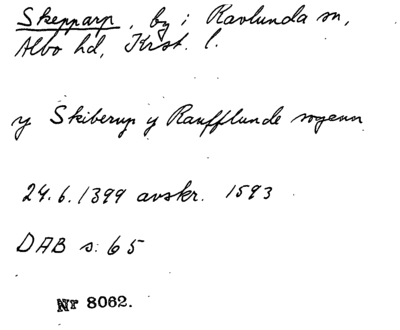 Skepparp, by i Ravlunda sn,
Albo hd, Krst. l.
y Skiberup y Raufflunde sogenn
24.6.1399 avskr. 1593
DAB s. 65
Nr 8062.